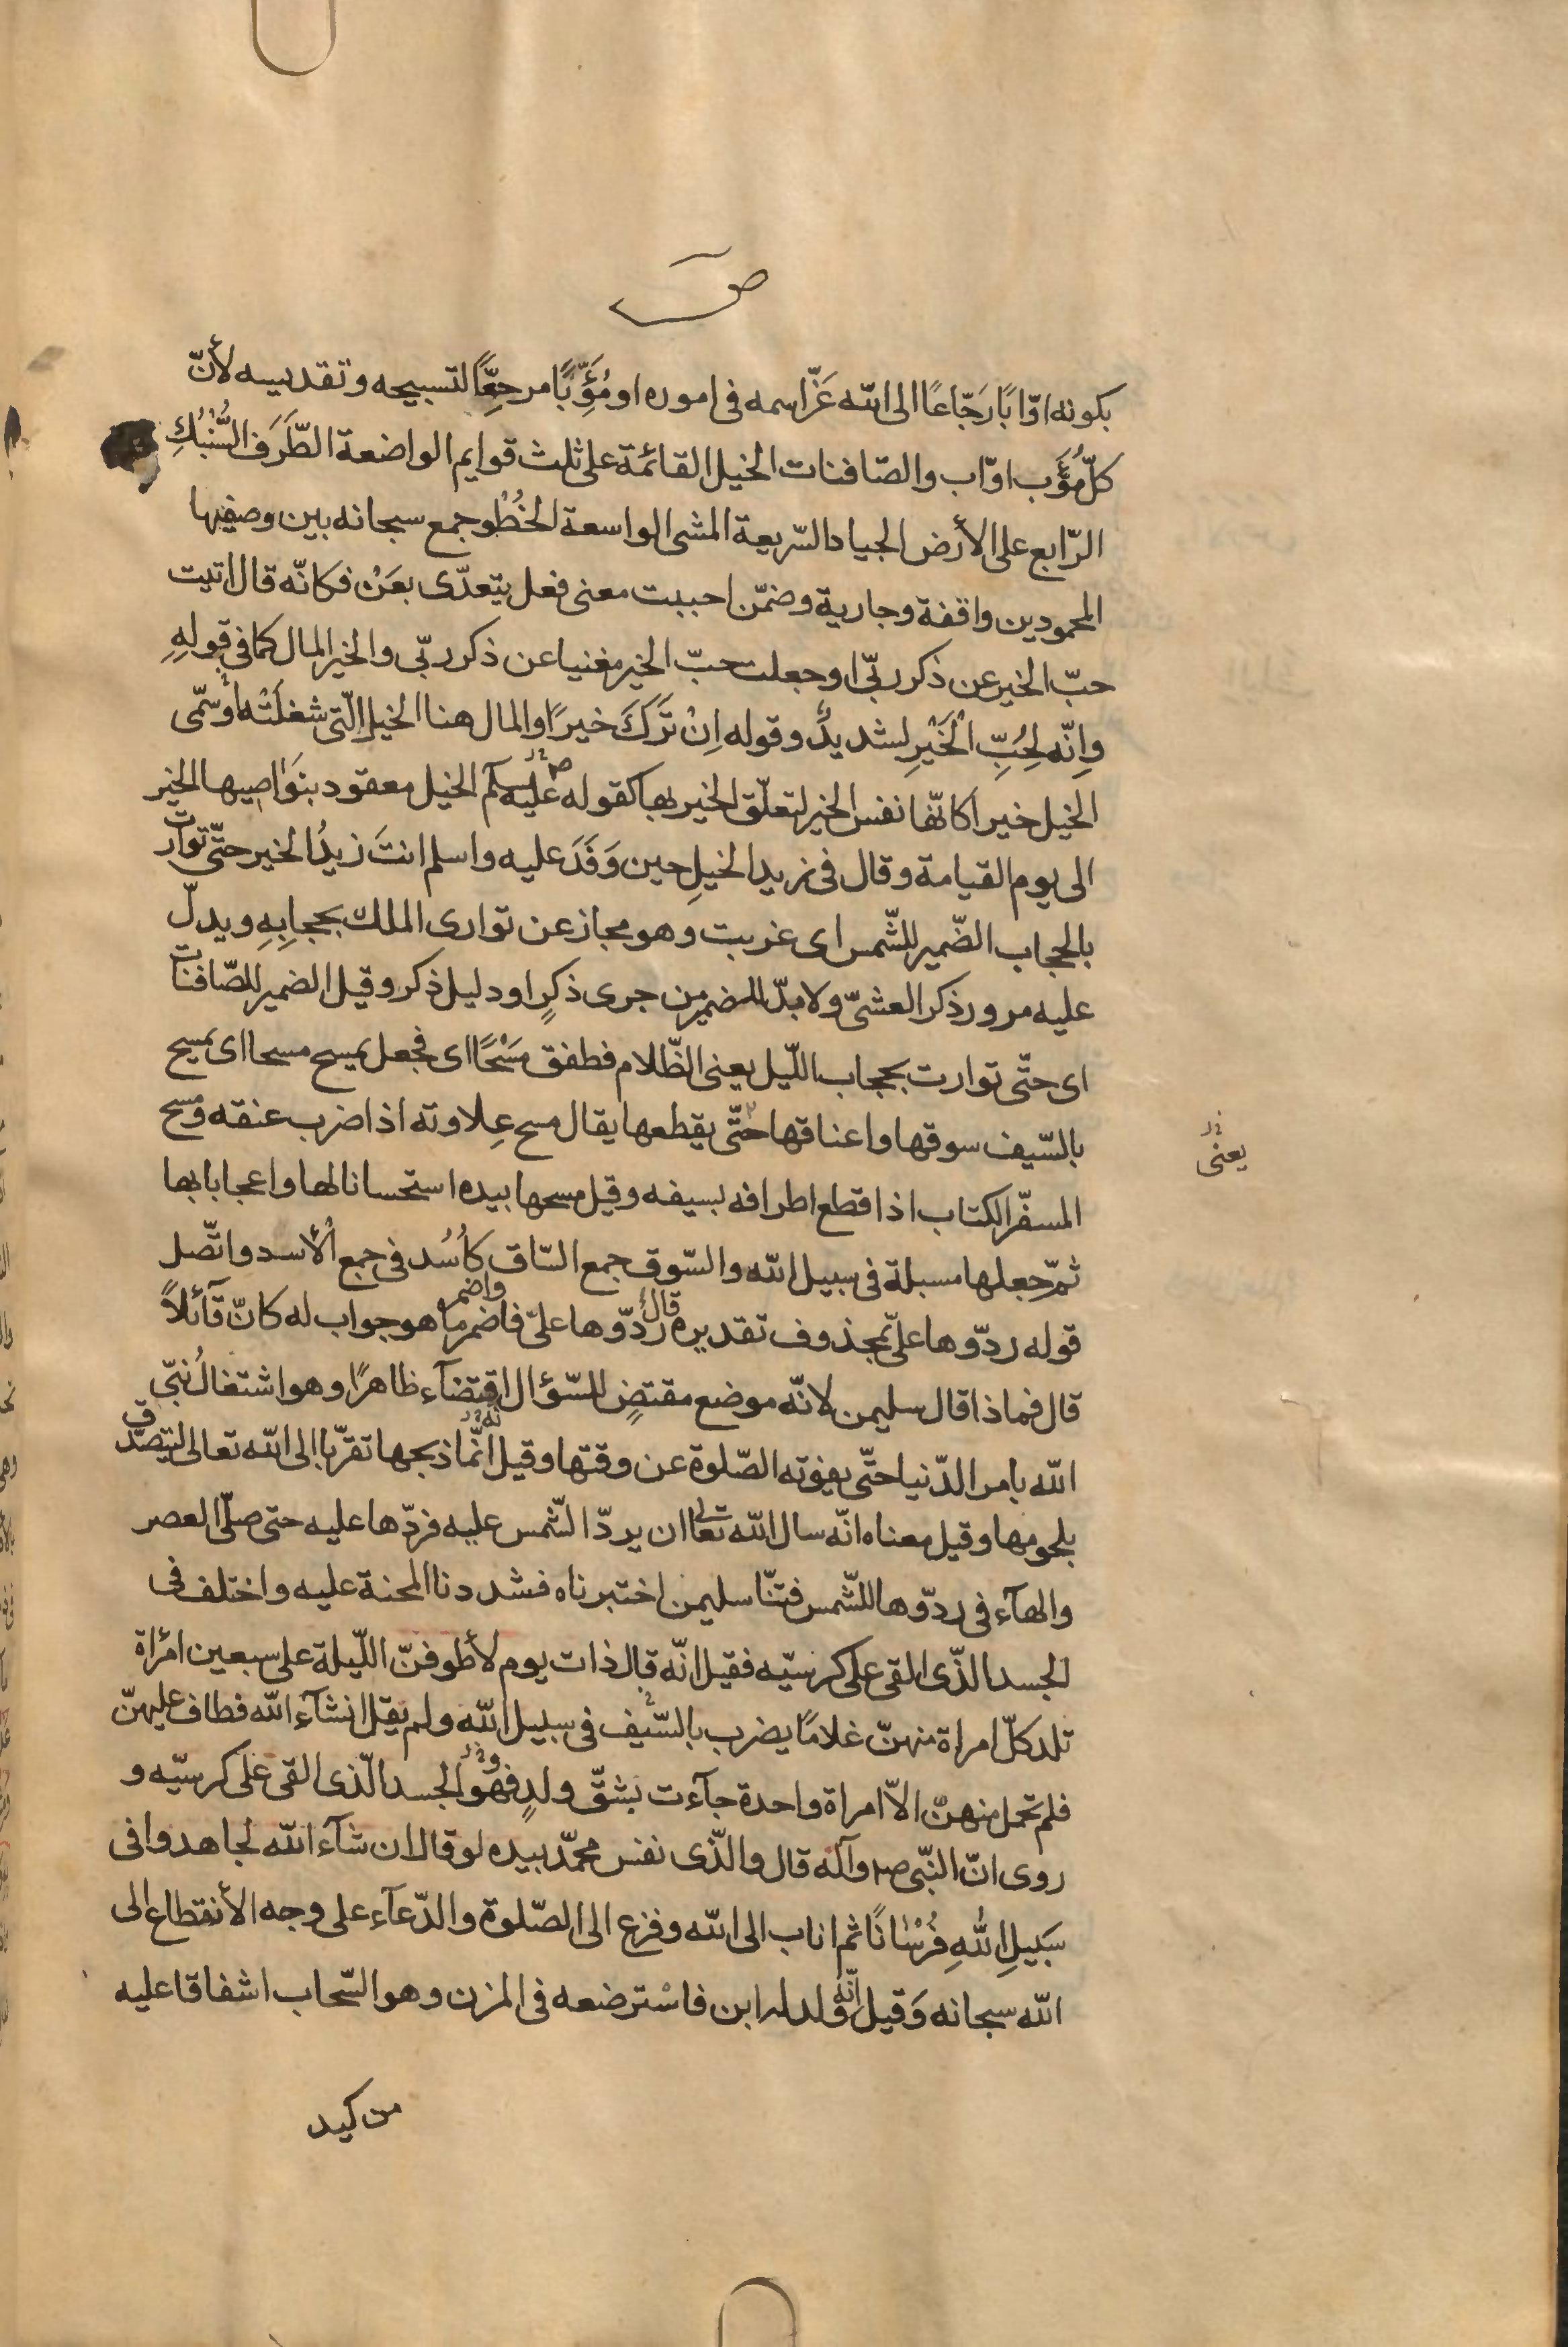 ص
بكونه اوّابًا رَجّاعًا الى الله عَزّ اسمه فى اموره او مُؤَوِّبًا مرجعًا لتسبيحه و تقديسه لأنّ
كلّ مُؤَوِّب اوّاب و الصّافنات الخيل القائمة على ثلث قوايم الواضعة الطَّرَف السُّنْبُكِ
الرّابع على الأرض الجياد السّريعة المشى الواسعة الخُطْو جمع سبحانه بين وصفيها
المحمودين واقفة و جارية و ضمّن احببت معنى فعل يتعدّى بعَنْ فكانّه قال اتيت
حبّ الخير عن ذكر ربّى او جعلت حبّ الخير مغنيا عن ذكر ربّى و الخير المال كما فى قولهِ
و اِنّه لِحُبِّ الْخَيْرِ لشديدٌ و قوله اِنْ تَرَكَ خيرًا و المال هنا الخيل الّتى شغلَتْه او سمّى
الخيل خيرا كانّها نفس الخير لتعلّق الخير بها كقوله عليه سلّم الخيل معقود بنَوَاصيها الخير
الى يوم القيامة و قال فى زيد الخيلِ حين وَفَدَ عليه و اسلم انتَ زيدُ الخير حتّى توارت
بالحجاب الضّمير للشّمس اى غربت و هو مجاز عن توارى الملك بحجابِهِ و يدلّ
عليه مرور ذكر العشىّ و لا بدّ للمضمر من جرى ذكرٍ او دليل ذكر و قيل الضمير للصّافنات
اى حتّى توارت بحجاب اللّيل يعنى الظّلام فطفق مَسْحًا اى فجعل يمسح مسحا اى يمسح
بالسّيف سوقها و اعناقها حتّى يقطعها يقال مسح عِلاوته اذا ضرب عنقه و مسح
يعنى
المسفّر الكتاب اذا قطع اطرافه بسيفه و قيل مسحها بيده استحسانا لها و اعجابا بها
ثمّ جعلها مسبلة فى سبيل الله و السّوق جمع السّاق كاُسُد فى جمع الأسد و اتّصل
قوله ردّوها علىّ بمحذوف تقديره قال ردّوها علىّ فاضمر و اضمر ما هو جواب له كانّ قآئلاً
قال فماذا قال سليمن لانّه موضع مقتضٍ للسّؤال اقتضآء ظاهرًا و هو اشتغالُ نبّى
الله بامر الدّنيا حتّى يفوته الصّلوة عن وقتها و قيل انّما ذبحها تقرّبا الى الله تعالى ليتصدّق
بلحومها و قيل معناه انّه سال الله تعالى ان يردّ الشّمس عليه فردّها عليه حتى صلّى العصر
و الهآء فى ردّوها للشّمس فتنّا سليمن اختبرناه فشددنا المحنة عليه و اختلف فى
الجسد الذّى القى على كرسيّه فقيل انّه قال ذات يوم لأطوفنّ اللّيلة على سبعين امرأة
تلد كلّ امراة منهنّ غلامًا يضرب بالسّيف فى سبيل الله و لم يقل انشآء الله فطاف عليهنّ
فلم تحمل منهنّ الاّ امراة واحدة جآءت بشقّ ولدٍ فهو الجسد الّذى القى على كرسيّه و
روى انّ النّبى ص و آله قال و الّذى نفس محمّد بيده لو قال ان شآء الله لجاهدوا فى
سَبيلِ اللهِ فُرْسَانًا ثم اناب الى الله و فزع الى الصّلوة و الدّعآء على وجه الأنقطاع الى
الله سبحانه وَ قيل انّه ولد له ابن فاسْترضعه فى المزن و هو السّحاب اشفاقا عليه
من كيد